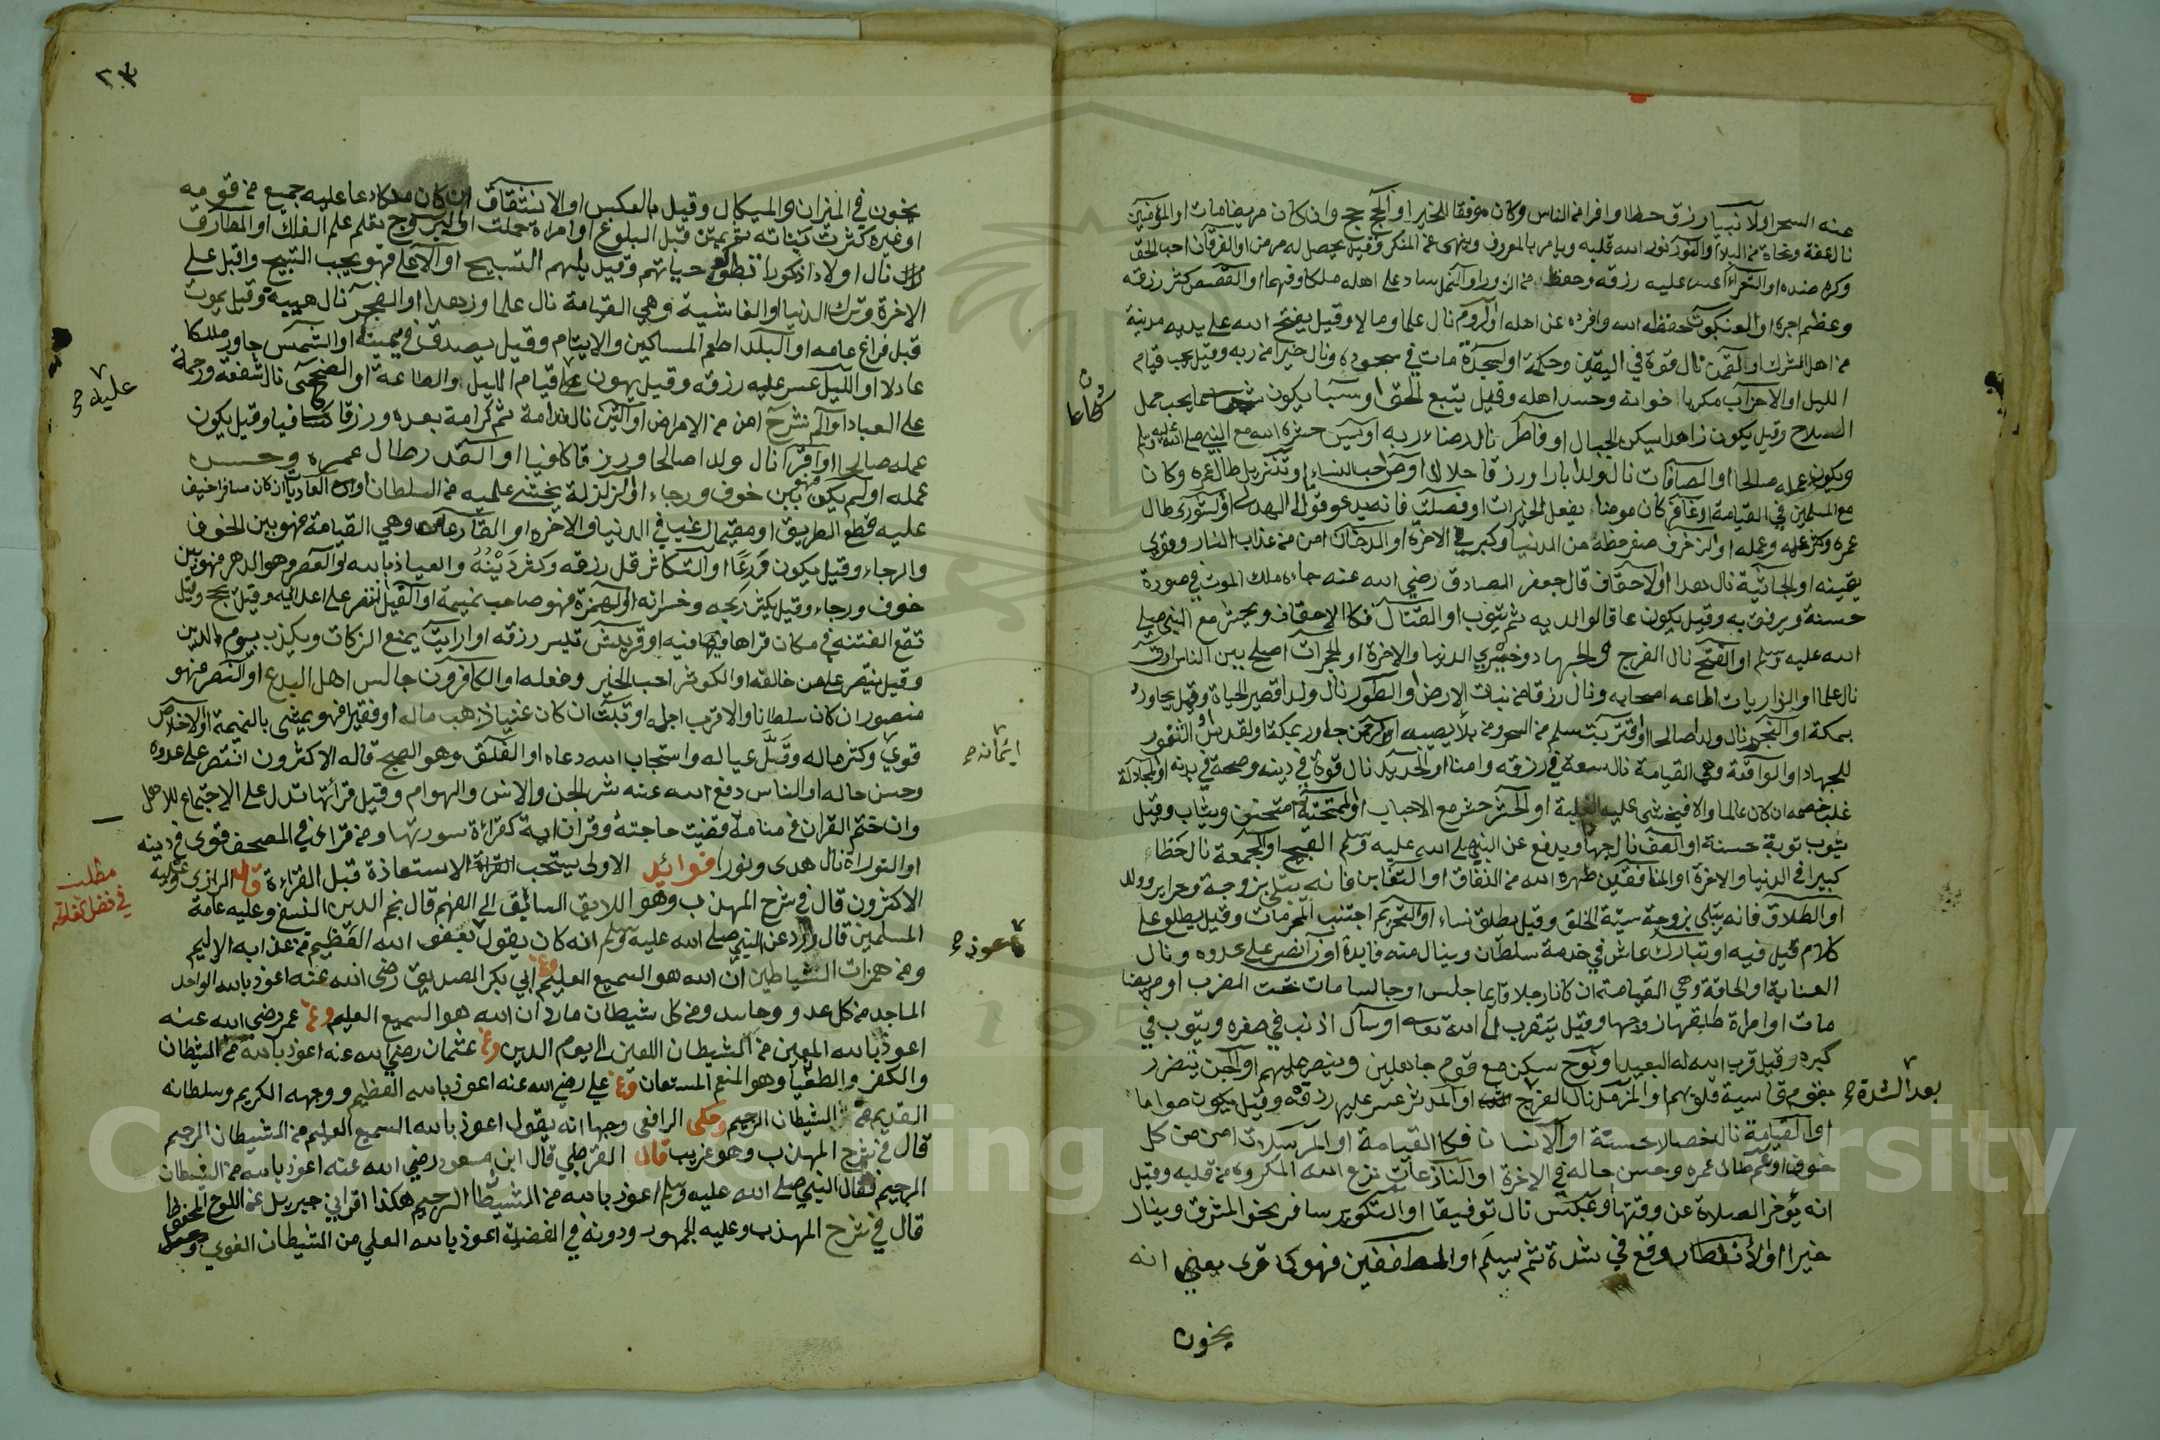 عنه السحر اولانبيا رزق حظا وافرا من الناس وكان موفقا للخير او الحج حج وان كان مريضا مات او المؤمنين
نال عفة ونجاة من البلاء او النور نور الله قلبه ويامر بالمعروف وينهى عن المنكر وقيل يحصل له مرض او الفرقان احب الحق
وكره ضده او الشعراء عسر عليه رزقه وحفظ من الزور او النمل ساد على اهله ملكا وفهما او القصص كثر رزقه
وعظم اجره او العنكبوت حفظه الله وافرده عن اهله او الروم نال علما ومالا وقيل يفتح الله على يديه مدينة
من اهل الشرك او لقمن نال قوة في اليقين وحكمة او سجدة مات في سجوده ونال خيرا من ربه وقيل يحب قيام
الليل او الاحزاب مكر باخوانه وحسد اهله وقيل يتبع الحق او سبا يكون شجاعا يحب حمل
السلاح وقيل يكون زاهدا يسكن الجبال او فاطر نال رضاء ربه او يس حشره الله مع النبي صلى الله عليه وسلم
ويكون عمله صالحا او الصافات نال ولدا بارا ورزقا حلالا او ص احب النساء او تنزيل طال عمره وكان
مع المسلمين في القيامة او غافر كان مومنا يفعل الخيرات او فصلت فانه يدعو قوما الى الهدى او لشورى طال
عمره وكثر علمه وعمله او الزخرف صغر حظه من الدنيا وكبر في الاخرة او الدخان امن من عذاب النار وقوى
يقينه او الجاثية نال هدا او الاحقاف قال جعفر الصادق رضي الله عنه جاءه ملك الموت في صورة
حسنة ويرفق به وقيل يكون عاقا لوالديه ثم يتوب او القتال فكالاحقاف ويحشر مع النبي صلى
الله عليه وسلم او الفتح نال الفرج والجهاد وخيري الدنيا والاخرة او لحجرات اصلح بين الناس او ق
نال علما او الذاريات اطاعه اصحابه ونال رزقا من نبات الارض او الطور نال ولدا قصير الحياة وقيل يجاور
بمكة او النجم نال ولدا صالحا او اقتربت سلم من السحر ومن بلاء يصيبه او الرحمن جاور بمكة او لقدس او الثغور
للجهاد او الواقعة وهي القيامة نال سعة في رزقه وامنا او الحديد نال قوة في دينه وصحة في بدنه او المجادلة
غلب خصمه ان كان عالما والا فيخشى عليه الغلبة او الحشر حشر مع الاحباب او الممتحنة امتحن ويثاب وقيل
يتوب توبة حسنة او الصف نال جهادا ويدفع عن النبي صلى الله عليه وسلم القبيح او الجمعة نال حظاء
كبيرا في الدنيا والاخرة او المنافقين طهره الله من النفاق او التغابن فانه يبتلى بزوجة وحراير وولد
او الطلاق فانه يبتلى بزوجة سيئة الخلق وقيل يطلق نساء او التحريم اجتنب المحرمات وقيل يطلع على
كلام قيل فيه او تبارك عاش في خدمة سلطان وينال منه فايدة او ن انصر على عدوه ونال
العناية او الحاقة وهي القيامة
مات او امراة طلقها زوجها وقيل يتقرب الى الله او سال اذنب في صغره ويتوب في
كبره وقيل قرب الله له البعيد او نوح سكن مع قوم جاهلين وينصر عليهم او الجن يتضرر
بقوم قاسية قلوبهم او المزمل نال الفرج او المدثر عسر عليه رزقه وقيل يكون صواما
او القيامة نال خصالا حسنة او الانسان فكالقيامة او المرسلات امن من كل
خوف او عم طال عمره وحسن حاله في الاخرة او النازعات نزع الله المكروه من قلبه وقيل
انه يؤخر الصلاة عن وقتها او عبس نال توفيقا او التكوير سافر نحو المشرق وينال
خيرا او الانفطار وقع في شدة ثم سيلم او المطففين فهو كما قرى يعني انه
يخون
بعد الشدة صح
يخون في الميزان والميكال وقيل بالعكس او الانشقاق ان كان ملكا دعا عليه جميع من قومه
او غيره كثرت بناته تم يمتن قبل البلوغ او امراة حملت او البروج تعلم علم الفلك او الطارق
نال اولادا ذكورا تطول حياتهم وقيل يلهم التسبيح او الاعلى فهو يحب التسبيح واقبل على
الاخرة وترك الدنيا او الغاشية وهي القيامة نال علما وزهدا او الفجر نال هيبة وقيل يموت
قبل فراغ عامه او البلد اطعم المساكين والايتام وقيل يصدق في يمينه او الشمس جاور ملكا
عادلا او الليل عسر عليه رزقه وقيل يهون عليه قيام الليل والطاعة او الضحى نال شفقة ورحمة
على العباد او الم نشرح امن من الامراض او التين نال ندامة ثم كرامة بعده ورزقا كافيا وقيل يكون
عمله صالحا او اقرا نال ولدا صالحا ورزقا كافيا او القدر طال عمره وحسن
عمله او لم يكن فهو بين خوف ورجاء او لزلزلة يخشى عليه من السلطان او العاديات ان كان مسافرا خيف
عليه قطع الطريق او مقيما رغب في الدنيا والاخرة او القارعة وهي القيامة فهو بين الخوف
والرجاء وقيل يكون ورعا او التكاثر قل رزقه وكثر دينه والعياذ بالله او العصر وهو الدهر فهو بين
خوف ورجاء وقيل يكثر ربحه وخسرانه او الهمزة فهو صاحب نميمة او الفيل انتصر على اعدائه وقيل يحج وقيل
تقع الفتنة في مكان قراها فيه او قريش تيسر رزقه او ارايت يمنع الزكات ويكذب بيوم الدين
وقيل ينتصر على من خالفه او الكوثر احب الخير وفعله او الكافرون جالس اهل البدع او النصر فهو
منصور ان كان سلطانا والا قرب اجله او تبت ان كان غنيا ذهب ماله او فقيرا فهو يمشي بالنميمة او الاخلاص
قوي وكثر ماله وقل عياله واستجاب الله دعاه او الفلق وهو الصبح قاله الاكثرون انتصر على عدوه
وحسن حاله او الناس دفع الله عنه شر الجن والانس والهوام وقيل قرأتها تدل على الاجتماع للاهل
وان ختم القران في منامه قضيت حاجته وقران اية كقراءة سورتها ومن قراء في المصحف قوى في دينه
او التوراة نال هدى ونورا فوائد الاولى يستحب الاستعاذة قبل القراءة قال الرازي وعليه
الاكثرون قال في شرح المهذب وهو اللايق السابق الى الفهم قال نجم الدين النسفي وعليه عامة
المسلمين قال ورد عن النبي صلى الله عليه وسلم انه كان يقول بعفو الله العظيم من عذابه الاليم
ومن همزات الشياطين ان الله هو السميع العليم وعن ابي بكر الصديق رضى الله عنه اعوذ بالله الواحد
الماجد من كل عدو وحاسد ومن كل شيطان مارد ان الله هو السميع العليم وعن عمر رضى الله عنه
اعوذ بالله المعين من الشيطان اللعين الى يوم الدين وعن عثمان رضي الله عنه اعوذ بالله من الشيطان
والكفر والطغيا وهو المنعم المستعان وعن علي رضي الله عنه اعوذ بالله العظيم ووجهه الكريم وسلطانه
القديم من الشيطان الرجيم وحكى الرافعي وجها انه يقول اعوذ بالله السميع العليم من الشيطان الرجيم
قال في شرح المهذب وهو غريب قال القرطبي قال ابن مسعود رضي الله عنه اعوذ بالله من الشيطان
الرجيم فقال النبي صلى الله عليه وسلم اعوذ بالله من الشيطا الرجيم هكذا اقراني جبريل عن اللوح المحفوظ
قال في شرح المهذب وعليه الجمهور ودونه في الفضيلة اعوذ بالله العلي من الشيطان الغوي
عليه صح
ايمانه صح
اعوذ صح
مطلب
King Saud University